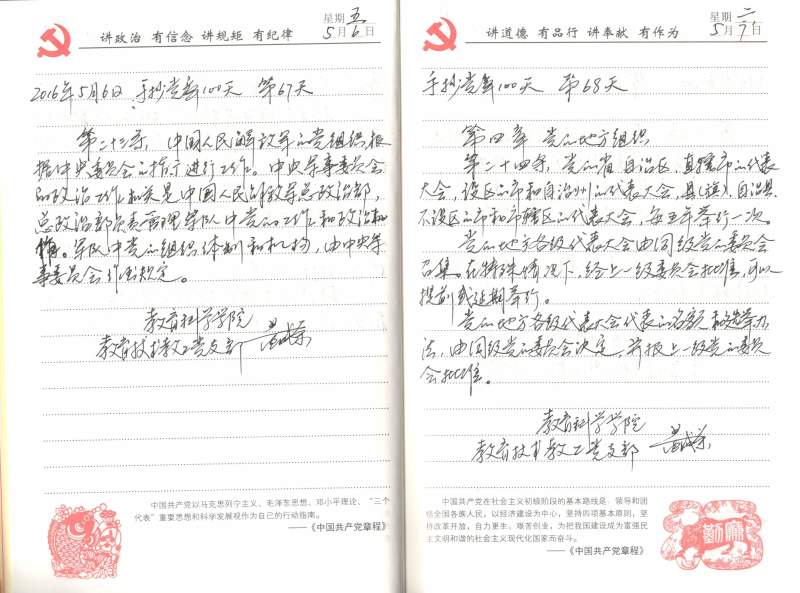 讲政治 有信念 讲规矩 有纪律
星期五
5月6日
2016年5月6日 手抄党章100天 第67天
第二十三条，中国人民解放军的党组织，根
据中央委员会的指示进行工作。中央军事委员会
的政治工作机关是中国人民解放军总政治部，
总政治部负责管理军队中党的工作和政治
工作。军队中党的组织体制和机构，由中央军
事委员会作出规定。
教育科学学院
教育技术教工党支部
中国共产党以马克思列宁主义、毛泽东思想、邓小平理论、“三个
代表”重要思想和科学发展观作为自己的行动指南。
——《中国共产党章程》
讲道德 有品行 讲奉献 有作为
星期二
5月7日
手抄党章100天 第68天
第四章 党的地方组织
第二十四条，党的省、自治区、直辖市的代表
大会，设区的市和自治州的代表大会，县（旗）、自治县、
不设区的市和市辖区的代表大会，每五年举行一次。
党的地方各级代表大会由同级党的委员会
召集。在特殊情况下，经上一级委员会批准，可以
提前或延期举行。
党的地方各级代表大会代表的名额和选举办
法，由同级党的委员会决定，并报上一级党的委员
会批准。
教育科学学院
教育技术教工党支部
中国共产党在社会主义初级阶段的基本路线是：领导和团
结全国各族人民，以经济建设为中心，坚持四项基本原则，坚
持改革开放，自力更生，艰苦创业，为把我国建设成为富强民
主文明和谐的社会主义现代化国家而奋斗。
——《中国共产党章程》
勤廉